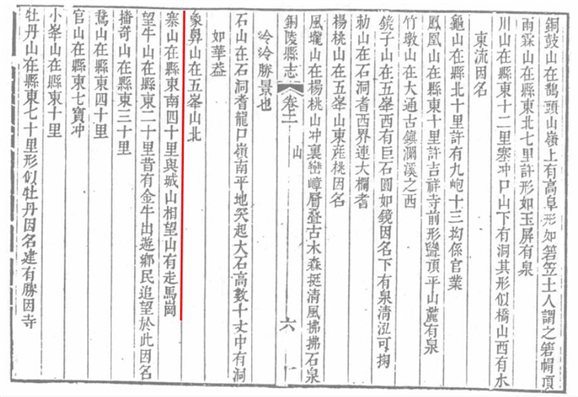 銅鼓山在鵝頭山嶺上有高阜形如箬笠土人謂之箬帽頂
雨霖山在縣東北七里許形如玉屏有泉
川山在縣東十二里寨冲口山下有洞其形似橋山西有水
東流因名
龜山在縣北十里許有九峒十三㘭係官業
鳳凰山在縣東十里許吉祥寺前形豐頂平山麓有泉
竹墩山在大通古鎮瀾溪之西
鏡子山在五峯西有巨石圓如鏡因名下有泉清泓可掬
勅山在石洞耆西界連大欄耆
楊桃山在五峯山東産桃因名
風壠山在楊桃山冲裏巒嶂層叠古木森挺清風拂拂石泉
銅陵縣志 卷二 山 六
泠泠勝景也
石山在石洞耆龍口嶺南平地突起大石高數十丈中有洞
如華葢
象鼻山在五峯山北
寨山在縣東南四十里與城山相望山有走馬崗
望牛山在縣東二十里昔有金牛出遊鄉民追望於此因名
播奇山在縣東三十里
鵞山在縣東四十里
官山在縣東七寶冲
小峯山在縣東四十里
牡丹山在縣東七十里形似牡丹因名建有勝因寺